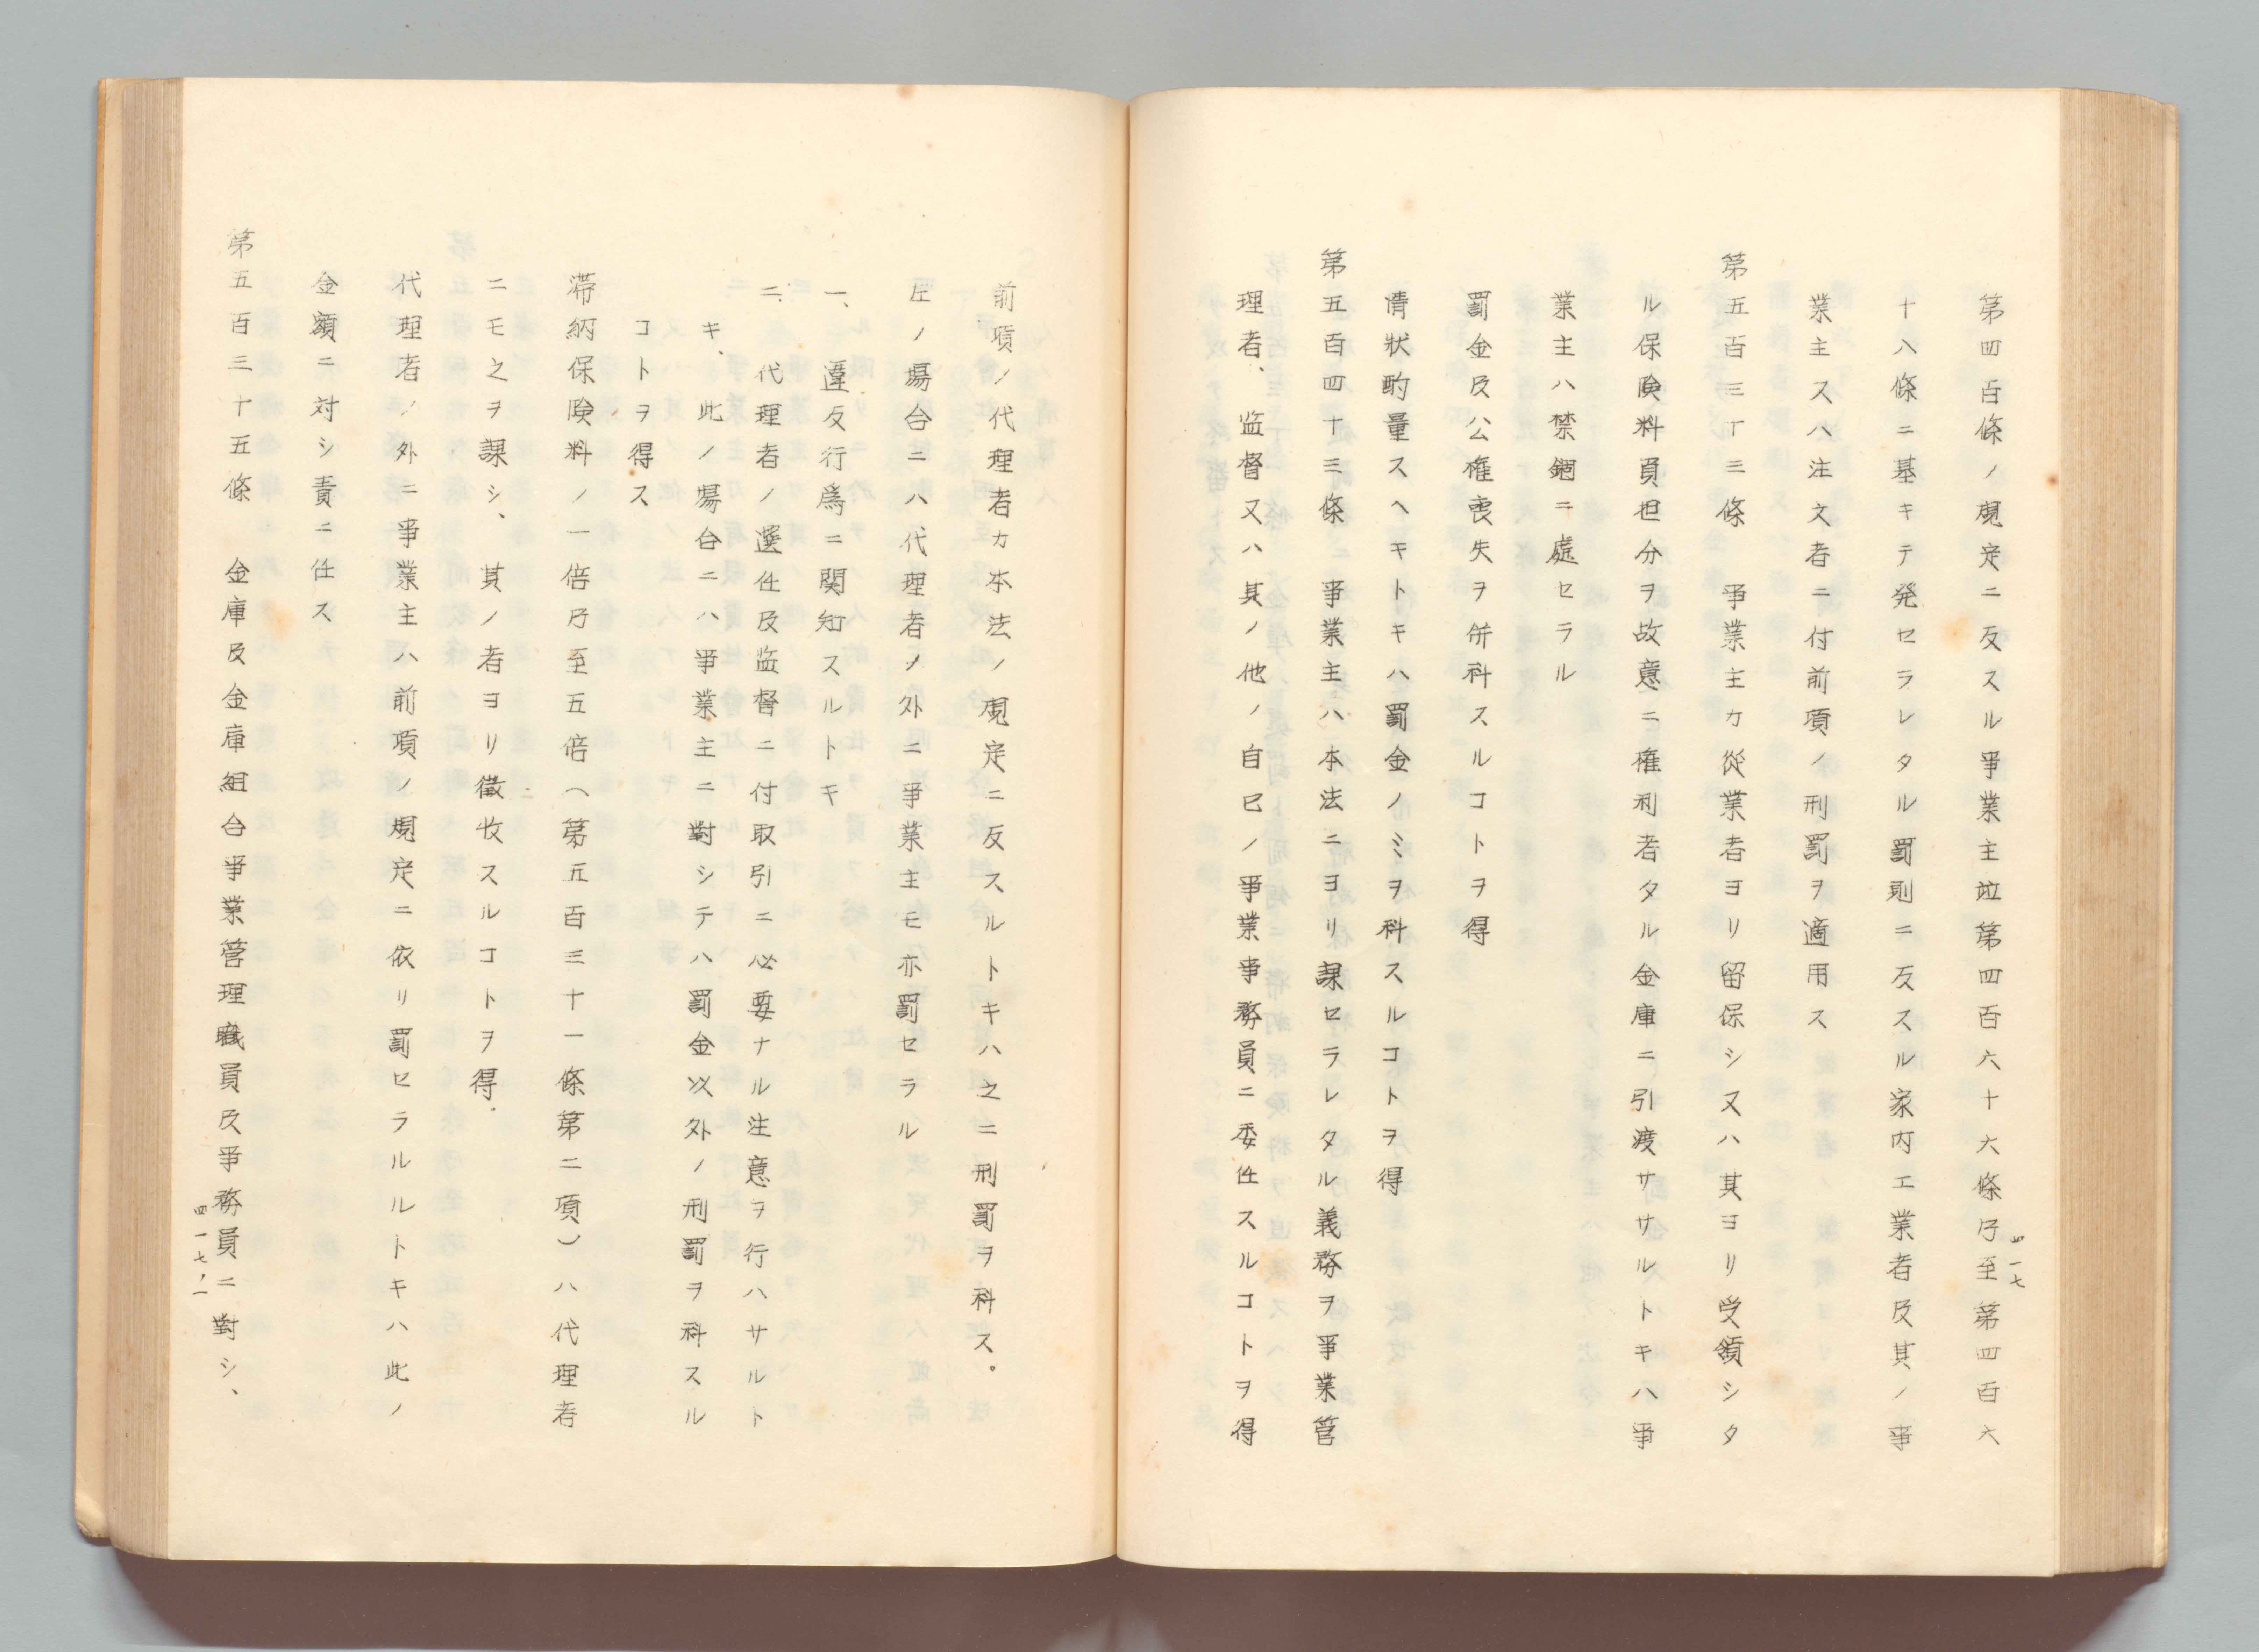 第四百條ノ規定ニ反スル事業主竝第四百六十六條乃至第四百六
十八條ニ基キテ発セラレタル罰則ニ反スル家内工業者及其ノ事
業主又ハ注文者ニ付前項ノ刑罰ヲ適用ス
第五百三十三條　事業主カ從業者ヨリ留保シ又ハ其ヨリ受領シタ
ル保険料負担分ヲ故意ニ権利者タル金庫ニ引渡ササルトキハ事
業主ハ禁錮ニ處セラル
罰金及公権喪失ヲ併科スルコトヲ得
情狀酌量スヘキトキハ罰金ノミヲ科スルコトヲ得
第五百四十三條　事業主ハ本法ニヨリ課セラレタル義務ヲ事業管
理者、監督又ハ其ノ他ノ自己ノ事業事務員ニ委任スルコトヲ得
四一七
前項ノ代理者カ本法ノ規定ニ反スルトキハ之ニ刑罰ヲ科ス。
左ノ場合ニハ代理者ノ外ニ事業主モ亦罰セラル
一、違反行爲ニ関知スルトキ
二、代理者ノ選任及監督ニ付取引ニ必要ナル注意ヲ行ハサルト
キ、此ノ場合ニハ事業主ニ對シテハ罰金以外ノ刑罰ヲ科スル
コトヲ得ス
滞納保険料ノ一倍乃至五倍（第五百三十一條第二項）ハ代理者
ニモ之ヲ課シ、其ノ者ヨリ徴收スルコトヲ得.
代理者ノ外ニ事業主ハ前項ノ規定ニ依リ罰セラルルトキハ此ノ
金額ニ対シ責ニ任ス
第五百三十五條　金庫及金庫組合事業管理職員及事務員ニ對シ、
四一七ノ一